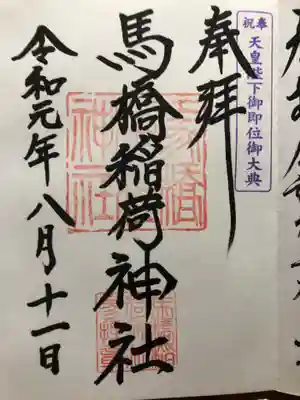 奉祝
天皇陛下御即位御大典
奉拝
馬橋稲荷神社
令和元年八月十一日